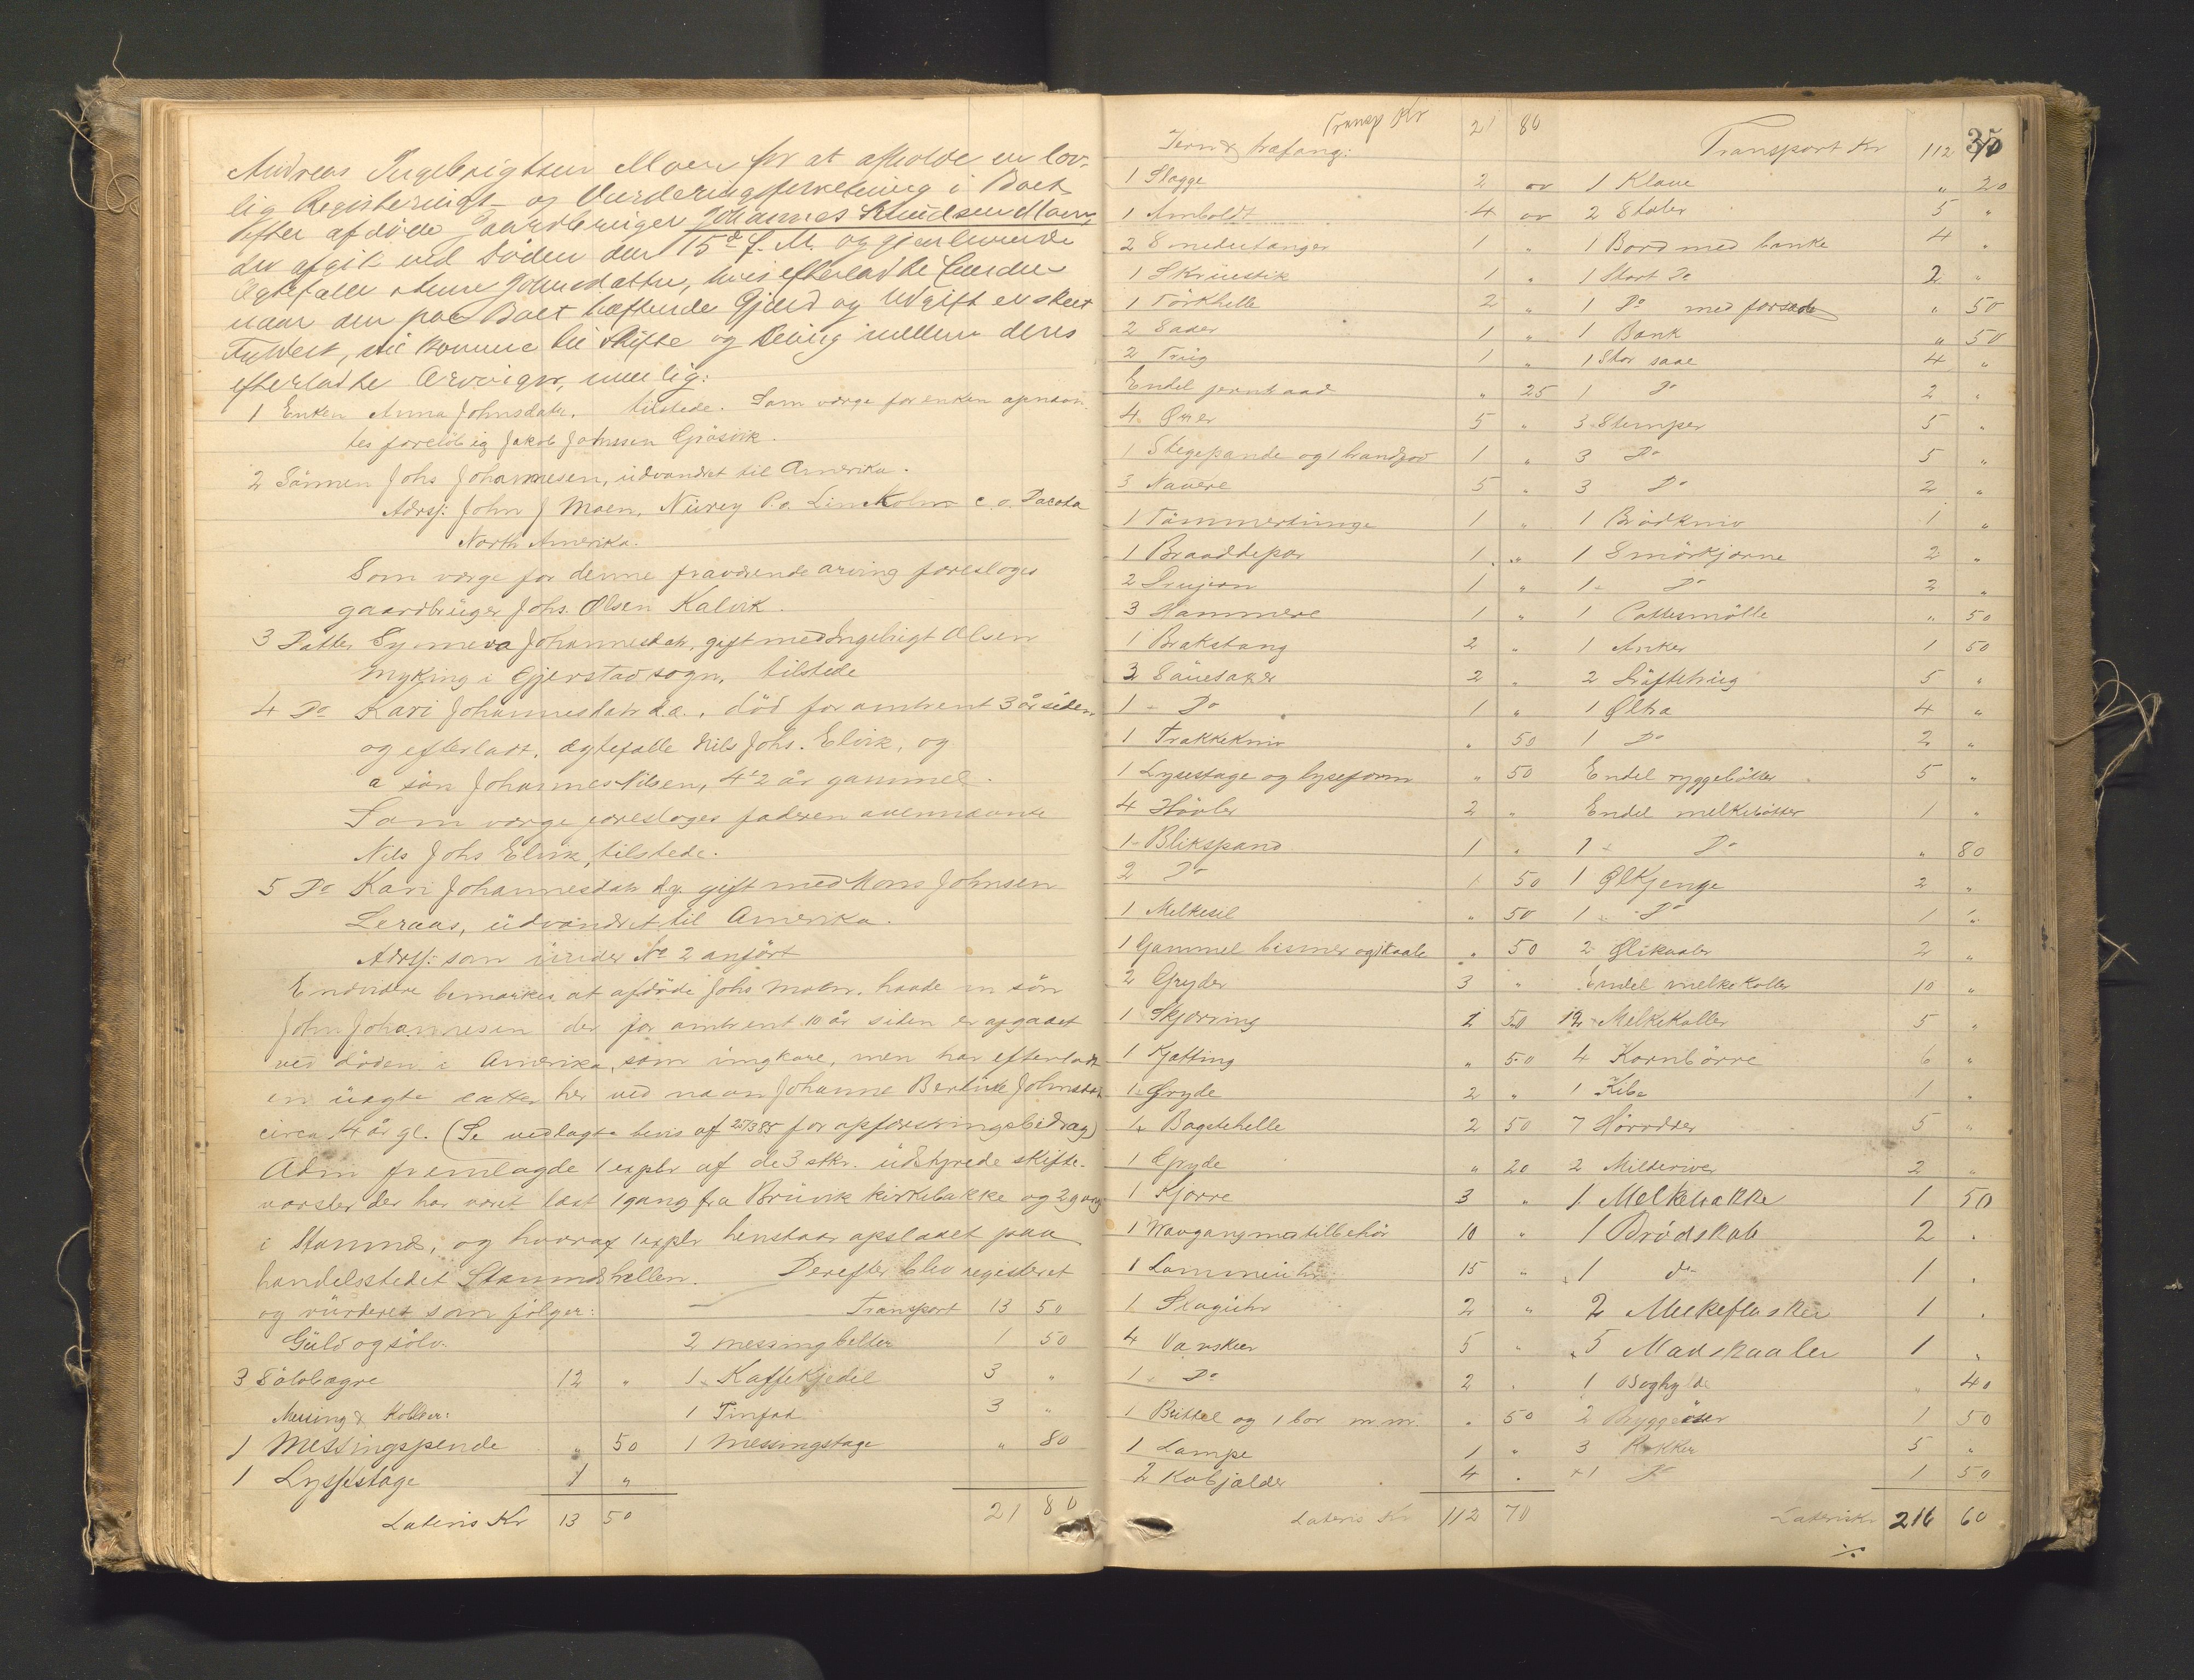 Andreas Ingebrigtsen Moen for at afholde en lov-
lig Registerings- og Vurderingsforretning i Boet
efter afdøde Gaardbruger Johannes Knudsen Moen,
der afgik ved Døden den 15de f. M. og gjenlevende
Ægtefælle Anna Johnsdatter, hvis efterladte Eiendele
naar den paa Boet hæftende Gjæld og Udgift er skeet
Fyldest, vil komme til Skifte og Deling mellem deres
efterladte Arvinger, nemlig:
1 Enken Anna Johnsdatr. tilstede. Som værge for enken opnævn-
tes foreløbig Jakob Johnsen Gjøsvik.
2 Sønnen Johs Johannesen, udvandret til Amerika.
Adrs: John J Moen, P.o. Linkoln c.o. Dacota
North Amerika.
Som værge for denne fraværende arving foresloges
gaardbrüger Johs. Olsen Kalvik.
3 Datter Synneva Johannesdatr, gift med Ingebrigt Olsen
Myking i Gjerstad sogn, tilstede
4 Do Kari Johannesdatr d.æ., død for omtrent 3 år siden
og efterladt, ægtefælle Nils Johs. Elvik, og
a søn Johannes Nilsen, 4 1/2 år gammel.
Som værge foresloges faderen ovennævnte
Nils Johs Elvik, tilstede.
5 Do Kari Johannesdatr d.y. gift med Mons Johnsen
Leraas, üdvandret til Amerika.
Adrs: som ünder No 2 anført
Endvidere bemærkes at afdøde Johs. Moen, havde en søn
John Johannesen der for omtrent 10 år siden er afgaaet
ved døden i Amerika, som üngkare, men har efterladt
en üægte datter her ved navn Johanne Bertine Johnsdatr
circa 14 år gl. (Se vedlagte bevis af 25/3 85 for opfostringsbidrag)
Adm fremlagde 1 explr af de 3 stkr. üdstyrede skifte-
varsler der har været læst 1 gang fra Brüvik kirkebakke og 2 gang
i Stamnes, og hvoraf 1 explr henstaar opslaaet paa
handelsstedet Stamneshellen. Derefter blev registeret
og vürderet som følger:
Transport 13 50
Güld og sølv.
2 messingbelter 1 50
3 Sølvbægre 12 "
1 Kaffekjedel 3 "
Messing & Kobber:
1 Tinfad 3 "
1 Messingspende " 50
1 Messingstage " 80
1 Lysestage 1 "
Lateris Kr 13 50
21 80
Transp Kr 21 80
Jern & træfang:
1 Slægge 2 "
1 Amboldt 4 "
2 Smedetanger 1 "
1 Skrüestik 1 "
1 Törkhelle 2 "
2 Sader 1 "
2 Trüg 1 "
Endel jernhaad " 25
4 Øxer 5 "
1 Stegepande og 1 brandjod 1 "
3 Navere 5 "
1 Tömmertünge 1 "
1 Braaddepær 1 "
2 1 "
3 Hammere 1 "
1 Brækstang 2 "
3 Saüesaxer 2 "
1 - Do 1 "
1 Trækkekniv " 50
1 Lysestage og lyseform " 50
4 Høvler 2 "
1 Blikspand 1 "
2 Do 1 50
1 Melkesil " 50
1 Gammel bismer og 1 skaale " 50
2 Gryder 3 "
1 Skjæring 1 50
1 Kjætting " 50
1 Gryde 2 "
1 Bagstehelle 2 50
1 Gryde " 20
1 Kjærre 3 "
1 Vævgang m. tilbehör 10 "
1 Lommeühr 15 "
1 Slagühr 2 "
4 5 "
1 Do 2 "
1 Beitel og 1 bor m m. " 50
1 Lampe 1 "
2 Kobjælder 4 "
Lateris Kr 112 70
35
Transport Kr 112 70
1 Klave " 20
2 Stoler 5 "
1 Bord med bænke 4 "
1 Stort Do 2 "
1 Do med forsæde " 50
1 Bænk " 50
1 Stor saae 4 "
1 Do 2 "
3 Stamper 5 "
3 Do 5 "
3 Do 2 "
1 Brödkniv 1 "
1 Smörkjærne 2 "
1 - Do 2 "
1 Caffemölle " 50
1 Anker 1 50
2 Löftetrüg 5 "
1 Øltra 4 "
1 Do 2 "
Endel ryggebötter 5 "
Endel melkebötter 1 "
1 - Do " 80
1 Ølkjenge 2 "
1 - Do 1 "
2 Ølskaaler 2 "
Endel melkekoller 10 "
12 Melkekoller 5 "
4 Kornbörre 6 "
1 Kibe 1 "
7 5 "
2 2 "
1 Melkebakke 1 50
1 Brødskab 2 "
1 do 1 "
2 Melkeflasker 1 "
5 Madskaaler 1 "
1 Boghylde " 40
2 Bryggeöser 1 50
3 Rokker 5 "
1 Do 1 50
Lateris Kr 216 60
./.